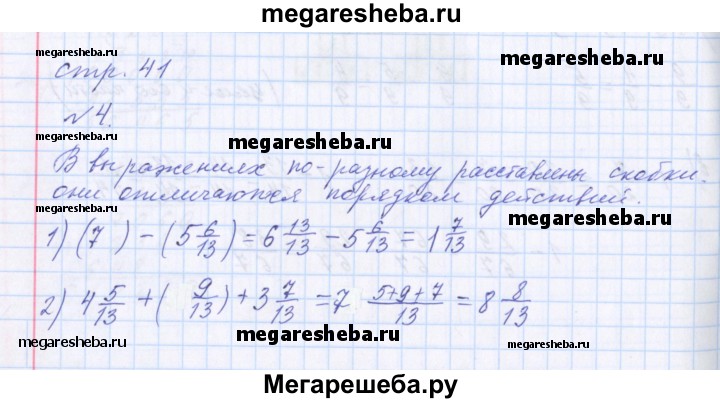 megaresheba.ru
megaresheba.ru
стр. 41
megaresheba.ru
№4.
megaresheba.ru
megaresheba.ru
В выражениях по-разному расставлены скобки.
они отличаются порядком действий.
megaresheba.ru
megaresheba.ru
1) (7 ) - (5 6/13) = 6 13/13 - 5 6/13 = 1 7/13
2) 4 5/13 + ( 9/13) + 3 7/13 = 7 (5+9+7)/13 = 8 8/13
megaresheba.ru
megaresheba.ru
megaresheba.ru
Мегарешеба.ру